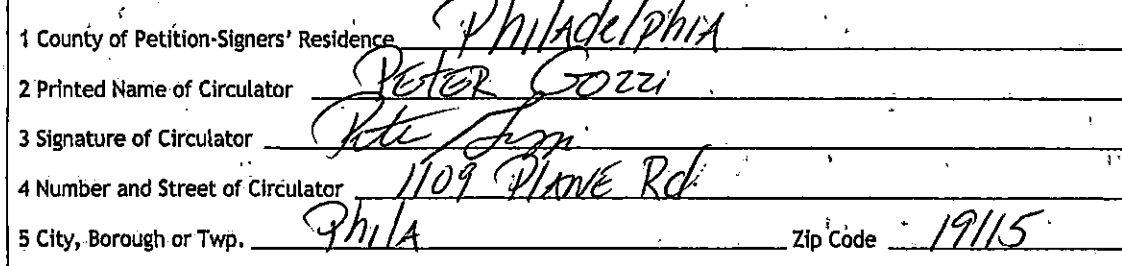 1 County of Petition-Signers' Residence Philadelphia
2 Printed Name of Circulator PETER GOZZI
3 Signature of Circulator
4 Number and Street of Circulator 1109 PLANE Rd
5 City, Borough or Twp. Phila Zip Code 19115